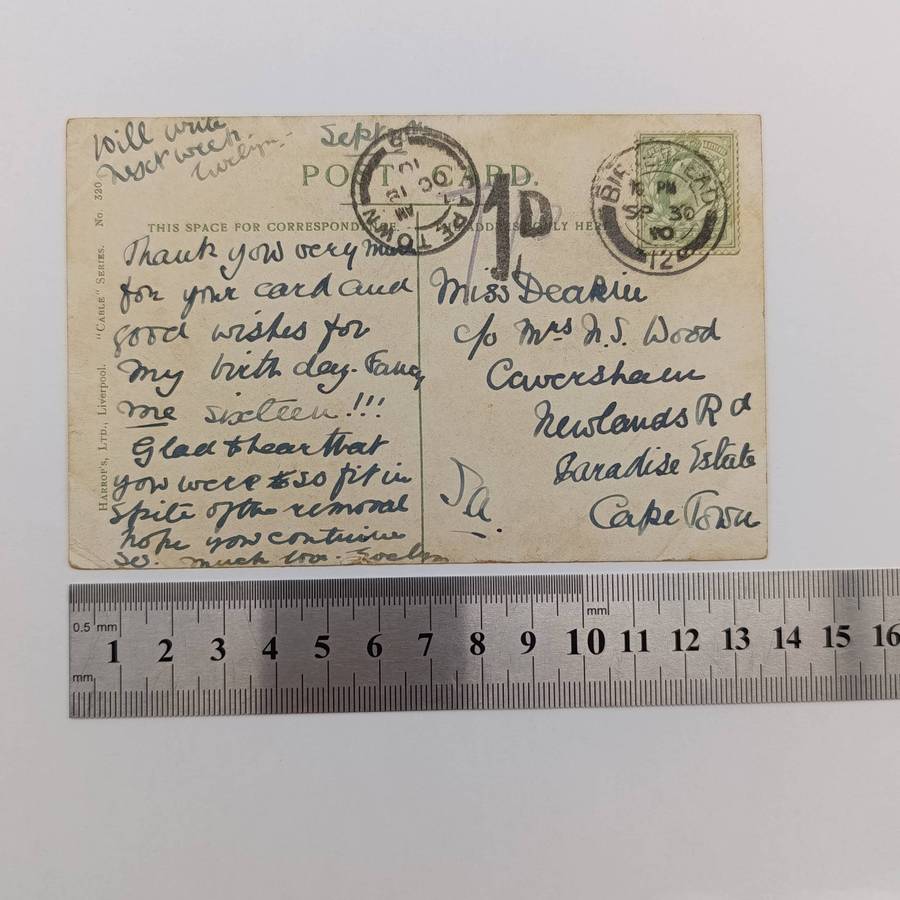 Will write
next week.
Evelyn.
Sept
POST CARD.
THIS SPACE FOR CORRESPONDENCE.
ADDRESS ONLY HERE
CAPE TOWN
AM
OC
10
1D
BIRKENHEAD
PM
SP 30
10
12
HARROP'S, LTD., Liverpool. "CABLE" SERIES. No. 320
Thank you very much
for your card and
good wishes for
my birthday. Fancy
me sixteen!!!
Glad to hear that
you were so fit in
spite of the removal
hope you continue
so. much love. Evelyn
Miss Deakin
c/o Mrs N.S. Wood
Caversham
Newlands Rd
Paradise Estate
Cape Town
0.5 mm
mm
1 2 3 4 5 6 7 8 9 10 11 12 13 14 15 16
mm